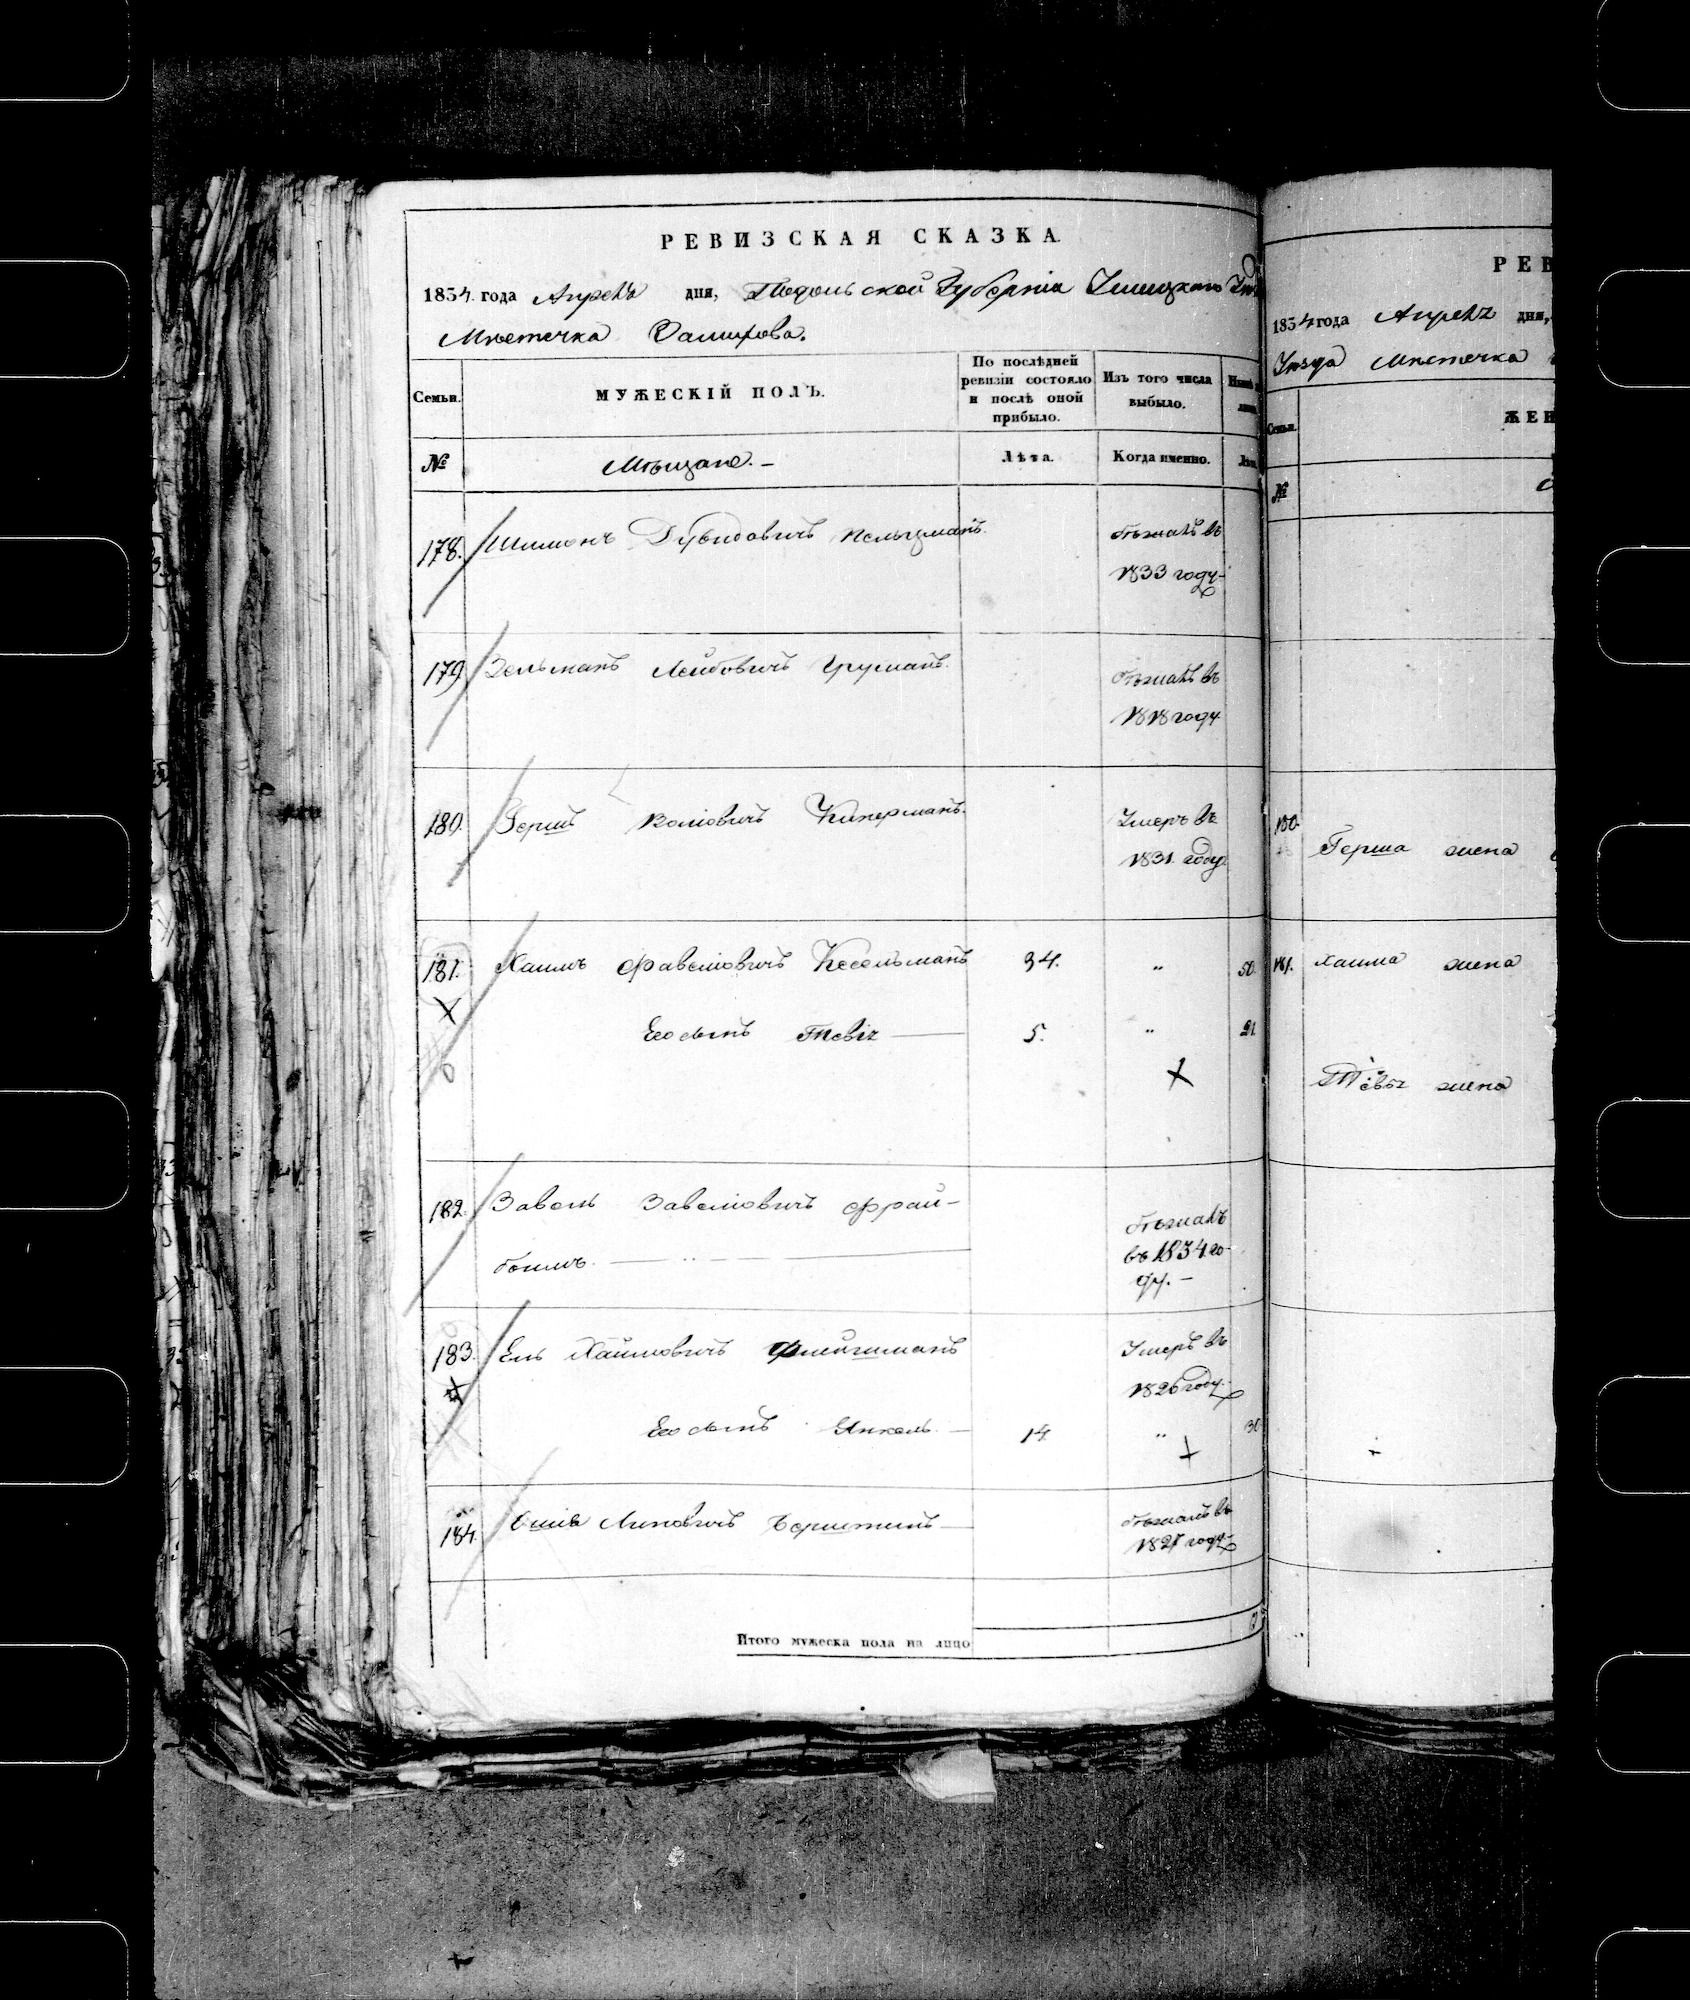 РЕВИЗСКАЯ СКАЗКА.
1834 года Апрель дня, Подольской Губерніи Ушицкаго
Мѣстечка
Семьи.
МУЖЕСКІЙ ПОЛЪ.
По послѣдней ревизіи состояло и послѣ оной прибыло.
Изъ того числа выбыло.
№
Мѣщане. –
Лѣта.
Когда именно.
178. Шимонъ Дувидовичъ бѣжалъ въ
1833 году
179. Зельманъ Лейбовичъ бѣжалъ въ
1818 году
180. Гершъ Волковичъ Киперманъ. Умеръ въ
1831. году
181. Хаимъ Фавелiовичъ Кесельманъ 34. „ 50.
Его сынъ Тевiя 5. „ 21.
182. Завель Завелiовичъ Фрай- бѣжалъ
боимъ. въ 1834 го-
ду. –
183. Ель Хаймовичъ Флейшманъ Умеръ въ
1826 году.
Его сынъ Янкель 14. „ 30
184. бѣжалъ въ
1827 году
Итого мужеска пола на лицо
РЕВ
1834 года Апрель дня,
Уѣзда Мѣстечка
Семьи.
ЖЕН
№
180.
Герша жена
181. Хаима жена
жена